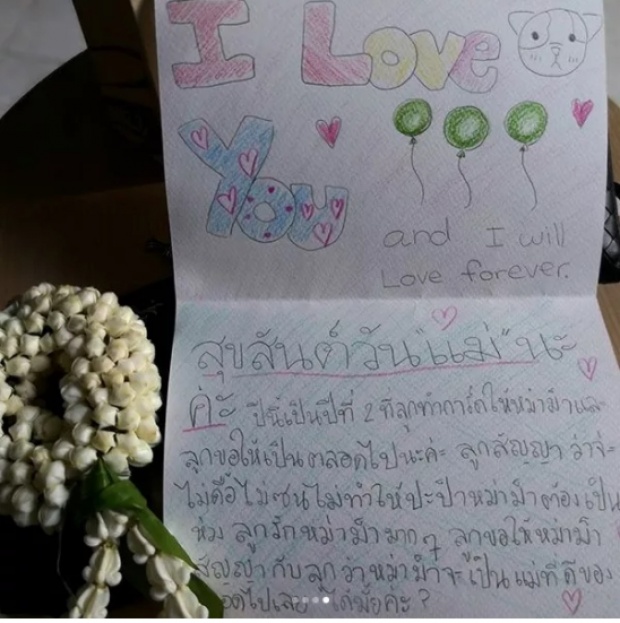 I Love
You
and I will
Love forever.
สุขสันต์วัน"แม่"นะ
ค่ะ ปีนี้เป็นปีที่ 2 ที่ลูกทำการ์ดให้หม่าม๊าและ
ลูกขอให้เป็นตลอดไปนะค่ะ ลูกสัญญาว่าจะ
ไม่ดื้อไม่ซนไม่ทำให้ปะป๊าหม่าม๊าต้องเป็น
ห่วง ลูกรักหม่าม๊ามากๆ ลูกขอให้หม่าม๊า
สัญญากับลูกว่าหม่าม๊าจะเป็นแม่ที่ดีของ
ไปเลย ได้มั้ยค่ะ?